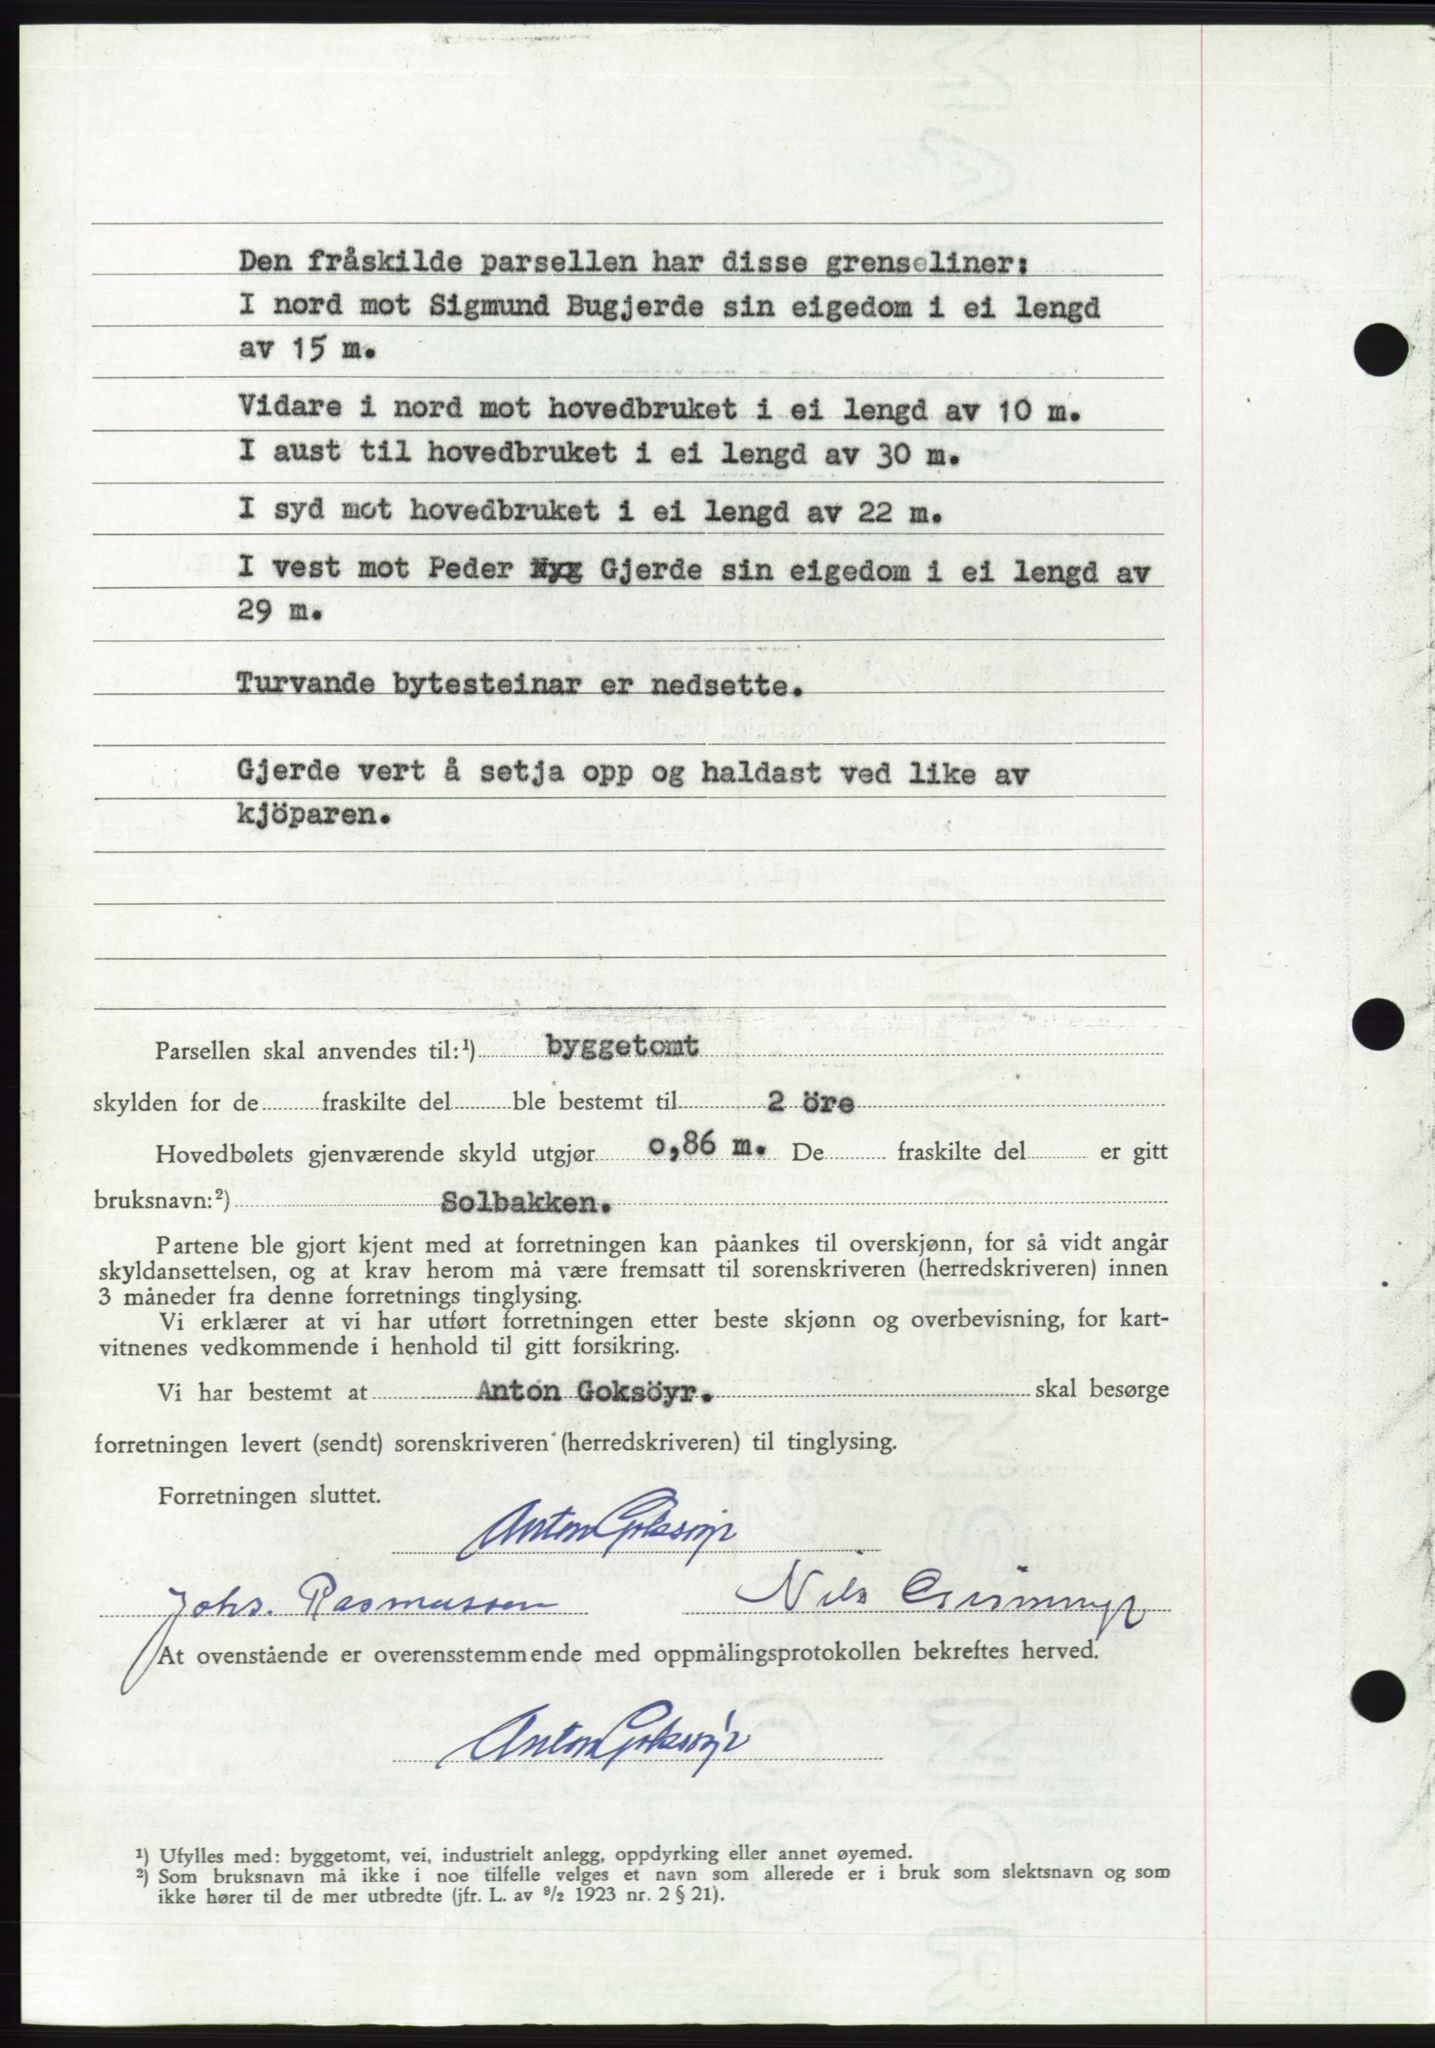 Den fråskilde parsellen har disse grenseliner:
I nord mot Sigmund Bugjerde sin eigedom i ei lengd
av 15 m.
Vidare i nord mot hovedbruket i ei lengd av 10 m.
I aust til hovedbruket i ei lengd av 30 m.
I syd mot hovedbruket i ei lengd av 22 m.
I vest mot Peder Nyg Gjerde sin eigedom i ei lengd av
29 m.
Turvande bytesteinar er nedsette.
Gjerde vert å setja opp og haldast ved like av
kjöparen.
Parsellen skal anvendes til:¹) byggetomt
skylden for de fraskilte del ble bestemt til 2 öre
Hovedbølets gjenværende skyld utgjør 0,86 m. De fraskilte del er gitt
bruksnavn:²) Solbakken.
Partene ble gjort kjent med at forretningen kan påankes til overskjønn, for så vidt angår
skyldansettelsen, og at krav herom må være fremsatt til sorenskriveren (herredskriveren) innen
3 måneder fra denne forretnings tinglysing.
Vi erklærer at vi har utført forretningen etter beste skjønn og overbevisning, for kart-
vitnenes vedkommende i henhold til gitt forsikring.
Vi har bestemt at Anton Goksöyr. skal besørge
forretningen levert (sendt) sorenskriveren (herredskriveren) til tinglysing.
Forretningen sluttet.
Anton Goksöyr
Johs. Rasmussen Nils
At ovenstående er overensstemmende med oppmålingsprotokollen bekreftes herved.
Anton Goksöyr
¹) Ufylles med: byggetomt, vei, industrielt anlegg, oppdyrking eller annet øyemed.
²) Som bruksnavn må ikke i noe tilfelle velges et navn som allerede er i bruk som slektsnavn og som
ikke hører til de mer utbredte (jfr. L. av ⁹/₂ 1923 nr. 2 § 21).